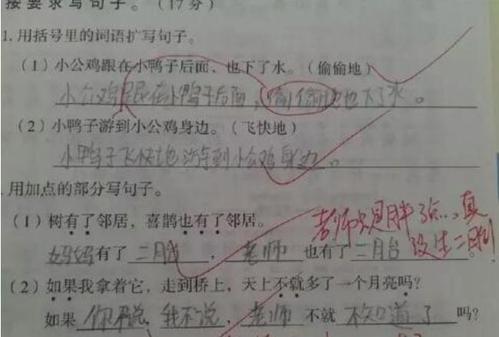 按要求写句子。(17分)
1.用括号里的词语扩写句子。
(1)小公鸡跟在小鸭子后面、也下了水。(偷偷地)
小公鸡跟在小鸭子后面,偷偷地也下了水。
(2)小鸭子游到小公鸡身边。(飞快地)
小鸭子飞快地游到小公鸡身边。
.用加点的部分写句子。
(1)树有了邻居,喜鹊也有了邻居。
妈妈有了二月台,老师也有了二月台
老师只是胖了点...真没生二胎!
(2)如果我拿着它,走到桥上,天上不就多了一个月亮吗?
如果你不说,我不说,老师不就不知道了吗?